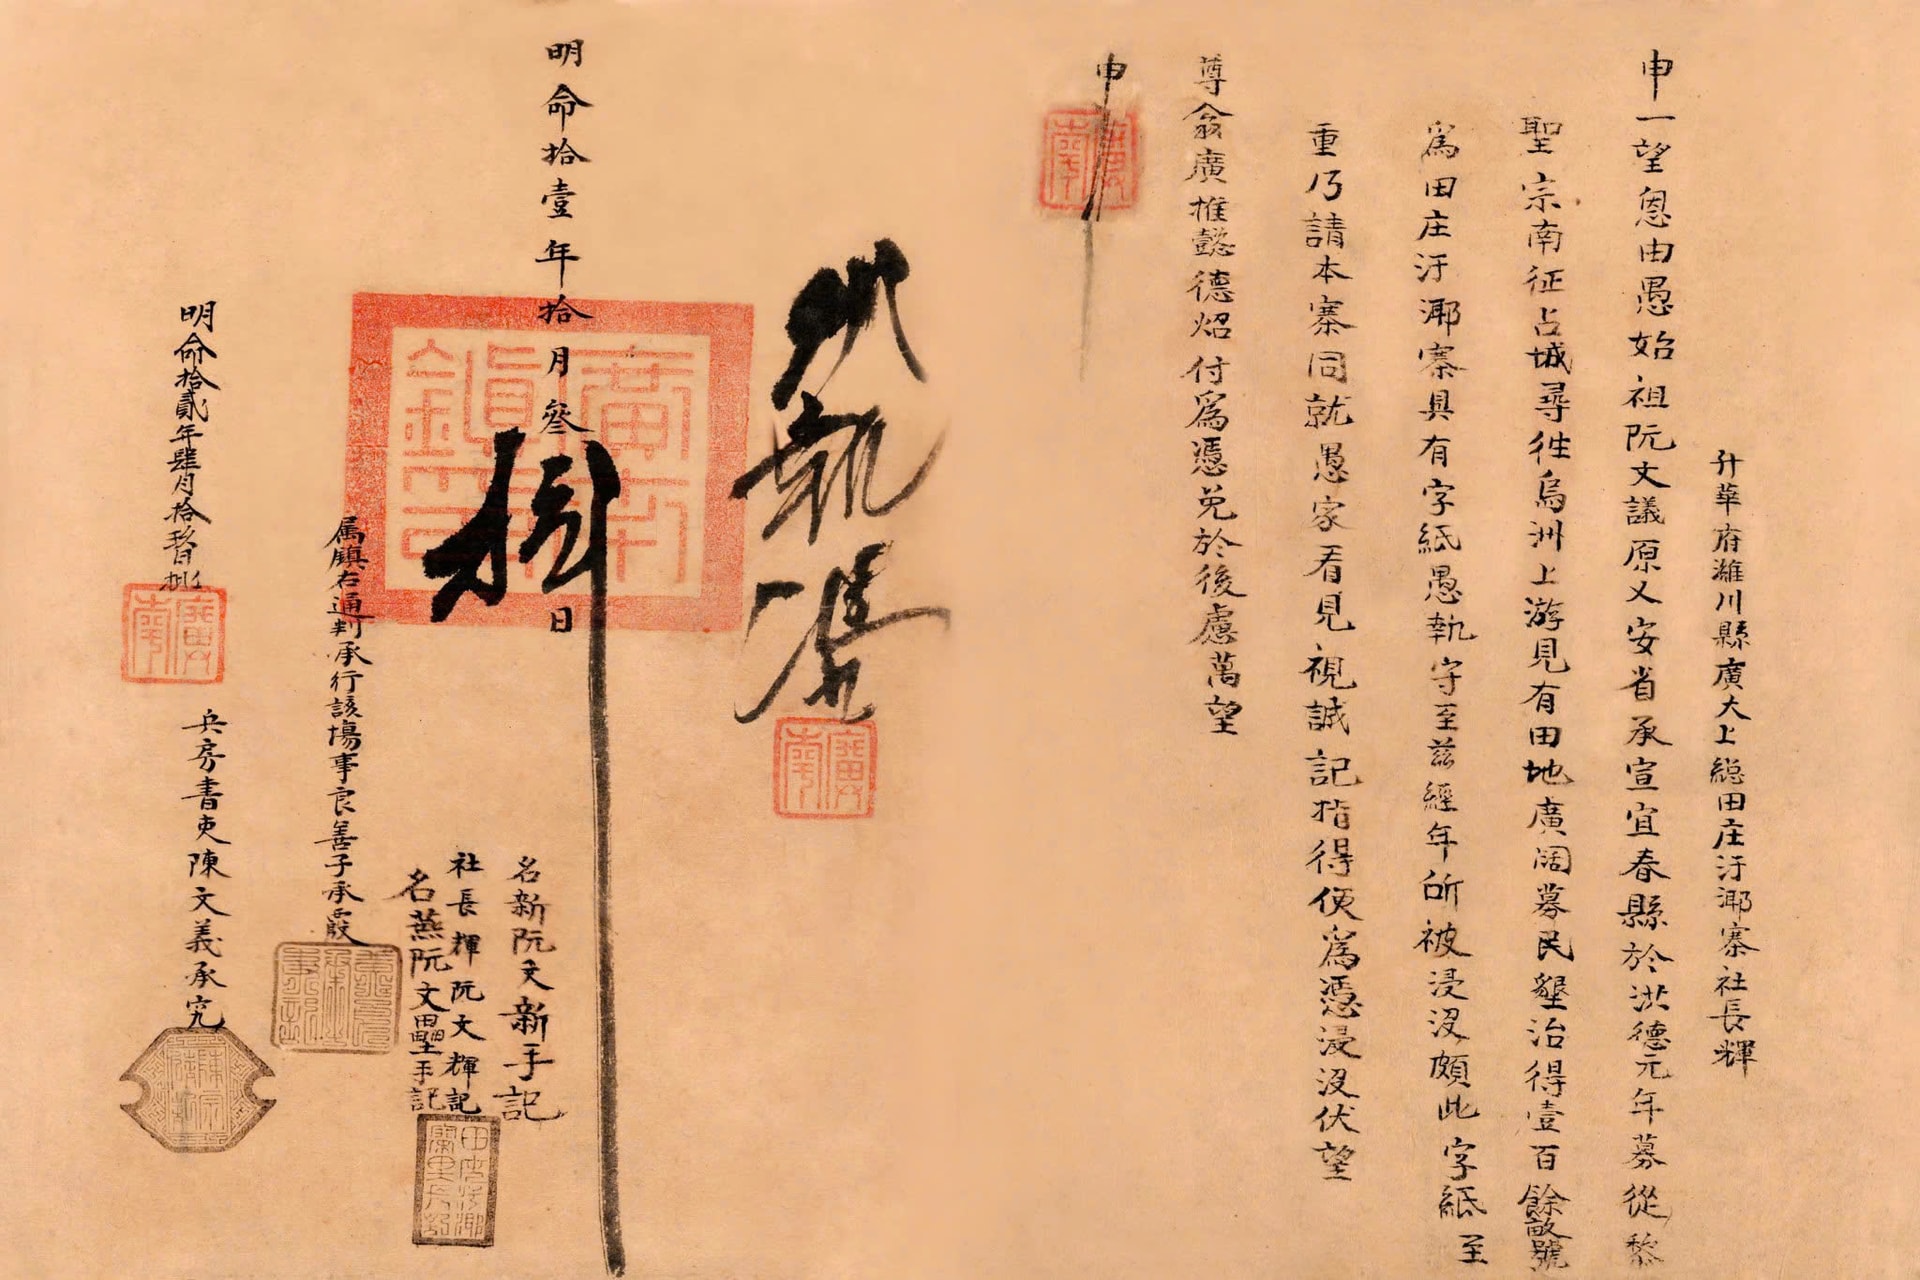 升華府濰川縣廣大上總田庄汙瀰寨社長輝
申一望恩由愚始祖阮文議原乂安省承宣宜春縣於洪德元年募從黎
聖宗南征占城尋徃烏洲上游見有田地廣闊募民墾治得壹百餘畝號
爲田庄汙瀰寨具有字紙愚執守至茲經年所被浸没頗此字紙至
重乃請本寨同就愚家看見視誠記指得便爲憑浸没伏望
尊翁廣推懿德炤付爲憑免於後慮萬望
申
廣南
執憑
廣南
明命拾壹年拾月叁日
廣南鎮印
名新阮文新手記
社長輝阮文輝記
名燕阮文壘手記
属鎮右通判承行該場事良善子承霞
明命拾貳年肆月拾玖日
廣南
兵房書吏陳文義承究